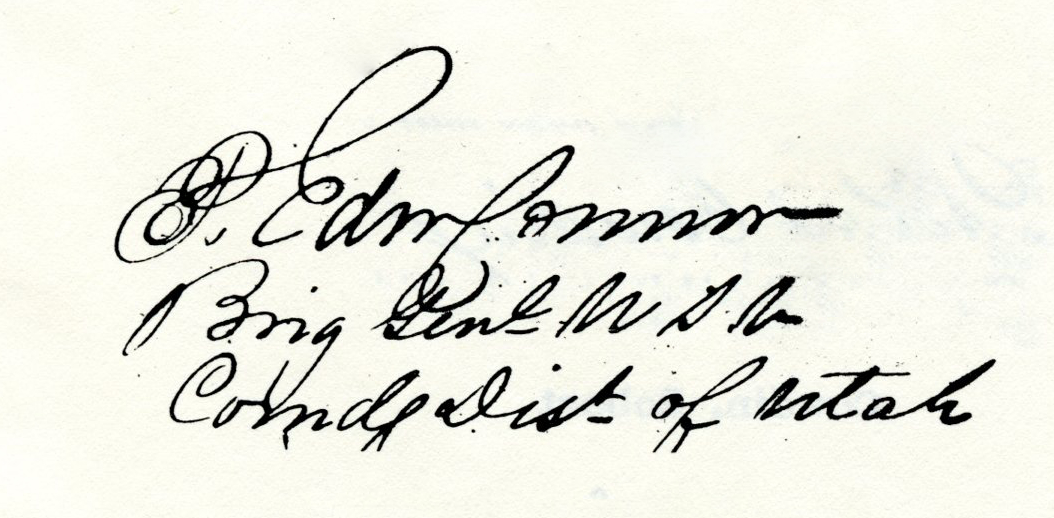 P. Edw Connor
Brig Genl U S V
Comdg Dist of Utah